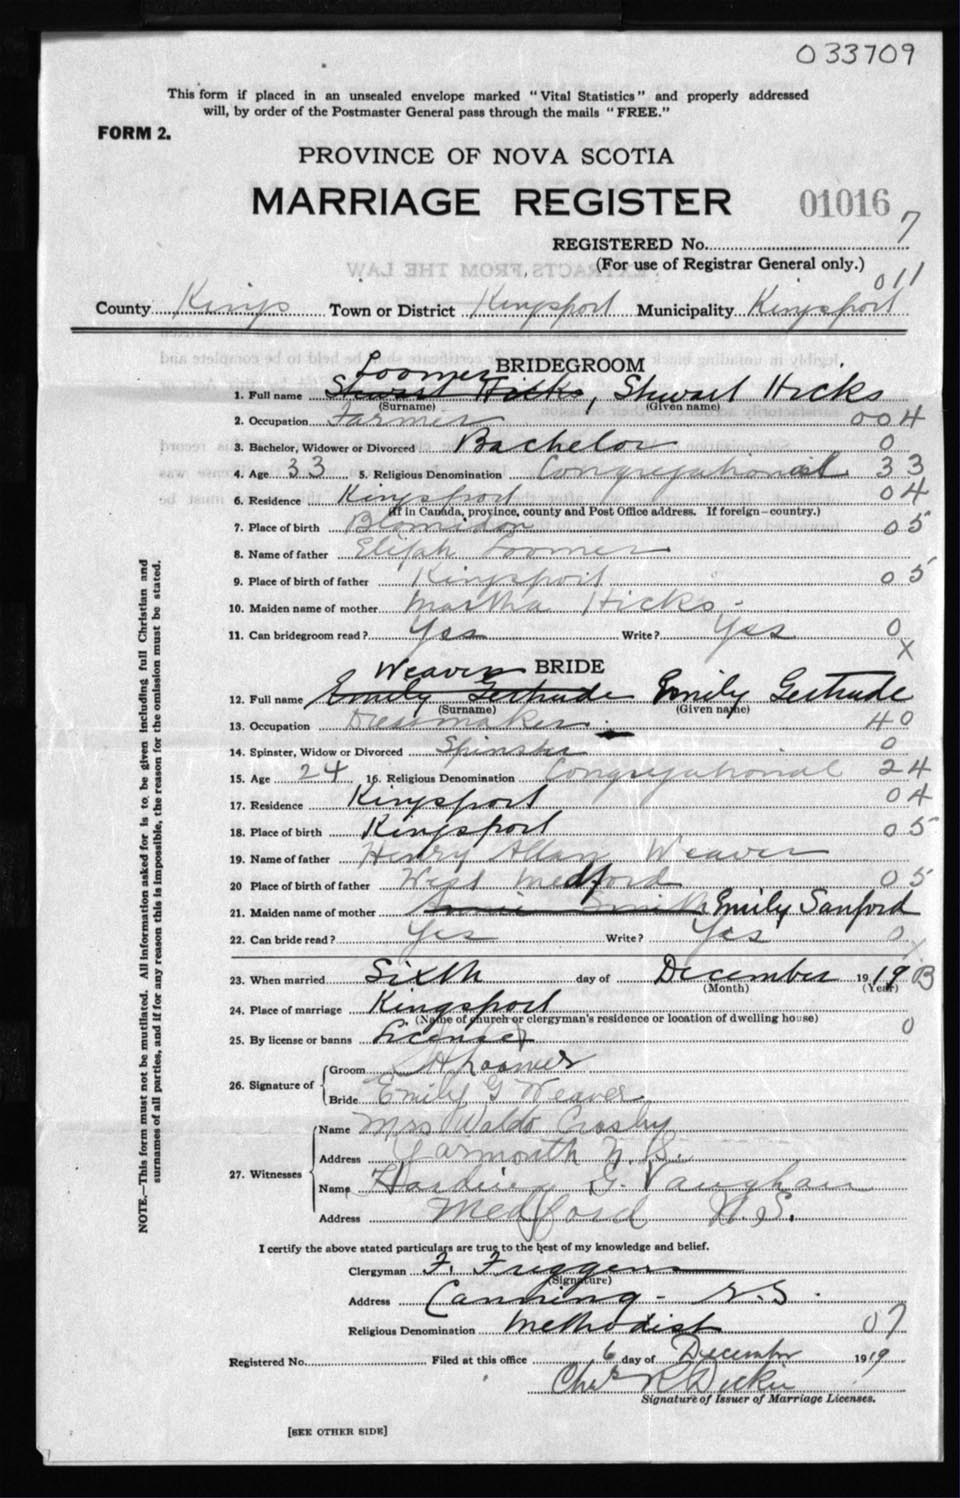 033709
This form if placed in an unsealed envelope marked "Vital Statistics" and properly addressed
will, by order of the Postmaster General pass through the mails "FREE."
FORM 2.
PROVINCE OF NOVA SCOTIA
MARRIAGE REGISTER 01016
REGISTERED No. 7
(For use of Registrar General only.)
011
County Kings Town or District Kingsport Municipality Kingsport
BRIDEGROOM
Loomer
1. Full name Stewart Hicks, Stewart Hicks
(Surname) (Given name)
2. Occupation Farmer 004
3. Bachelor, Widower or Divorced Bachelor 0
4. Age 33 5. Religious Denomination Congregational 33
6. Residence Kingsport 04
(If in Canada, province, county and Post Office address. If foreign—country.)
7. Place of birth Blomidon 05
8. Name of father Elijah Loomer
9. Place of birth of father Kingsport 05
10. Maiden name of mother Martha Hicks
11. Can bridegroom read? Yes Write? Yes 0
X
Weaver BRIDE
12. Full name Emily Gertrude Emily Gertrude
(Surname) (Given name)
13. Occupation Dressmaker 40
14. Spinster, Widow or Divorced Spinster 0
15. Age 24 16. Religious Denomination Congregational 24
17. Residence Kingsport 04
18. Place of birth Kingsport 05
19. Name of father Henry Allan Weaver
20 Place of birth of father West Medford 05
21. Maiden name of mother Annie Smith Emily Sanford
22. Can bride read? Yes Write? Yes 0
X
23. When married Sixth day of December 1919 B
(Month) (Year)
24. Place of marriage Kingsport
(Name of church or clergyman's residence or location of dwelling house)
25. By license or banns License 0
26. Signature of Groom S H Loomer
Bride Emily G Weaver
27. Witnesses
Name Mrs Waldo Crosby
Address Yarmouth N.S.
Name Harding G. Vaughan
Address Medford N.S.
I certify the above stated particulars are true to the best of my knowledge and belief.
Clergyman F. Friggens
(Signature)
Address Canning - N.S.
Religious Denomination Methodist 07
Registered No. Filed at this office 6 day of December 1919
Chas R Dickie
Signature of Issuer of Marriage Licenses.
[SEE OTHER SIDE]
NOTE.—This form must not be mutilated. All information asked for is to be given including full Christian and
surnames of all parties, and if for any reason this is impossible, the reason for the omission must be stated.